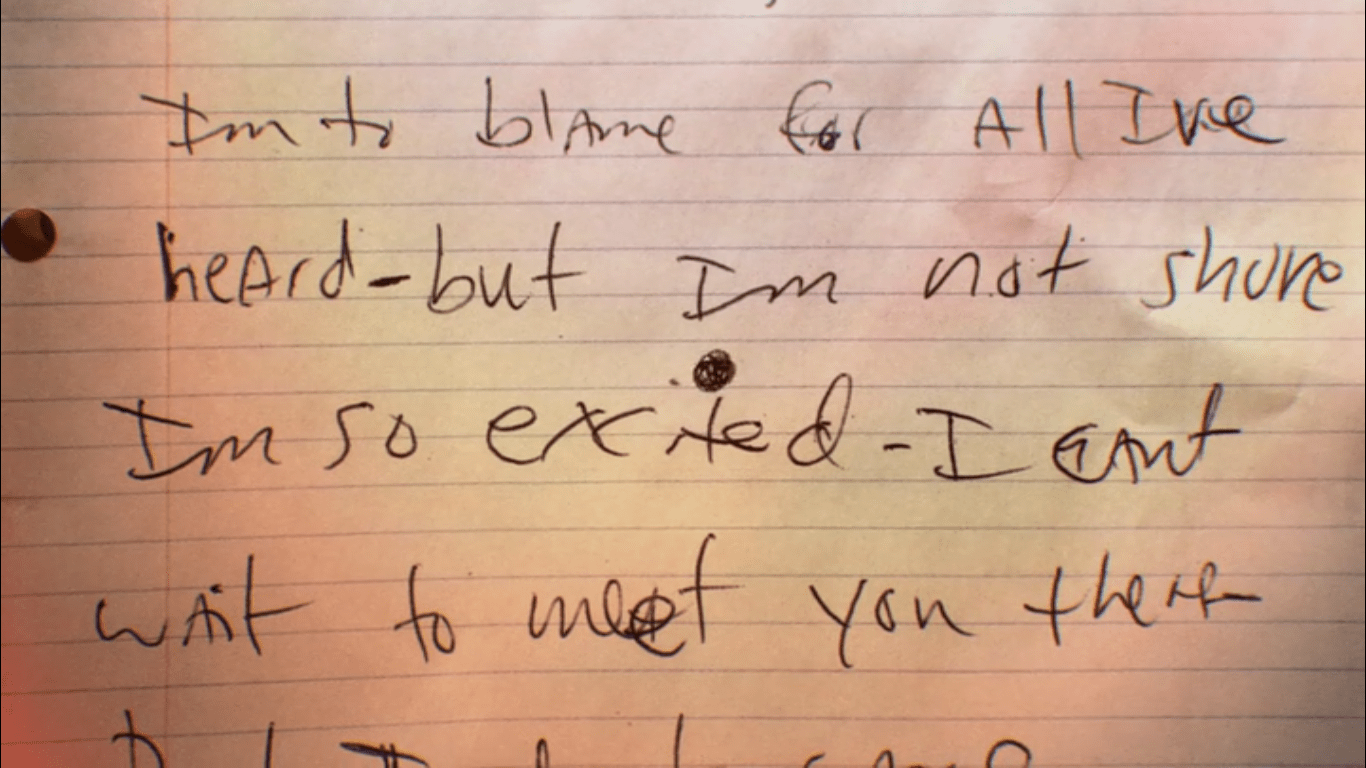 Im to blame for All Ive
heard-but Im not shure
Im so exited-I cant
wait to meet you there